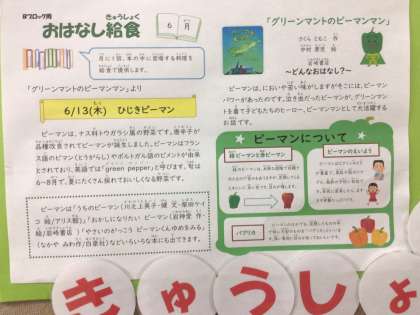 Bブロック用
おはなし給食
きゅうしょく
6月
月に1回、本の中に登場する料理を
給食で提供します。
「グリーンマントのピーマンマン」より
6/13(木) ひじきピーマン
ピーマンは、ナス科トウガラシ属の野菜です。唐辛子が
品種改良されてピーマンが誕生しました。ピーマンはフラン
ス語のピマン(とうがらし)やポルトガル語のピメントが由来
とされており、英語では「green pepper」と呼びます。旬は
6~8月で、夏にたくさん採れておいしくなる野菜です。
ピーマンは「うちのピーマン(川之上英子・健 文・
絵/アリス館)」「おかしになりたい ピーマン(岩神愛 作・
絵/岩崎書店)」「やさいのがっこう ピーマンくんゆめをみる」
(なかや みわ作/白泉社)などいろいろな本にも出てきます。
「グリーンマントのピーマンマン」
さくら ともこ 作
中村 景児 絵
岩崎書店
~どんなおはなし?~
ピーマンは、においや苦い味がしますがそこには、ピーマン
パワーがあったのです。泣き出だったピーマンが、グリーンマン
トを着て子どもたちのヒーロー、ピーマンマンとして大活躍する
お話です。
ピーマンについて
緑ピーマンと赤ピーマン
ピーマンのえいよう
パプリカ
きゅうしょ